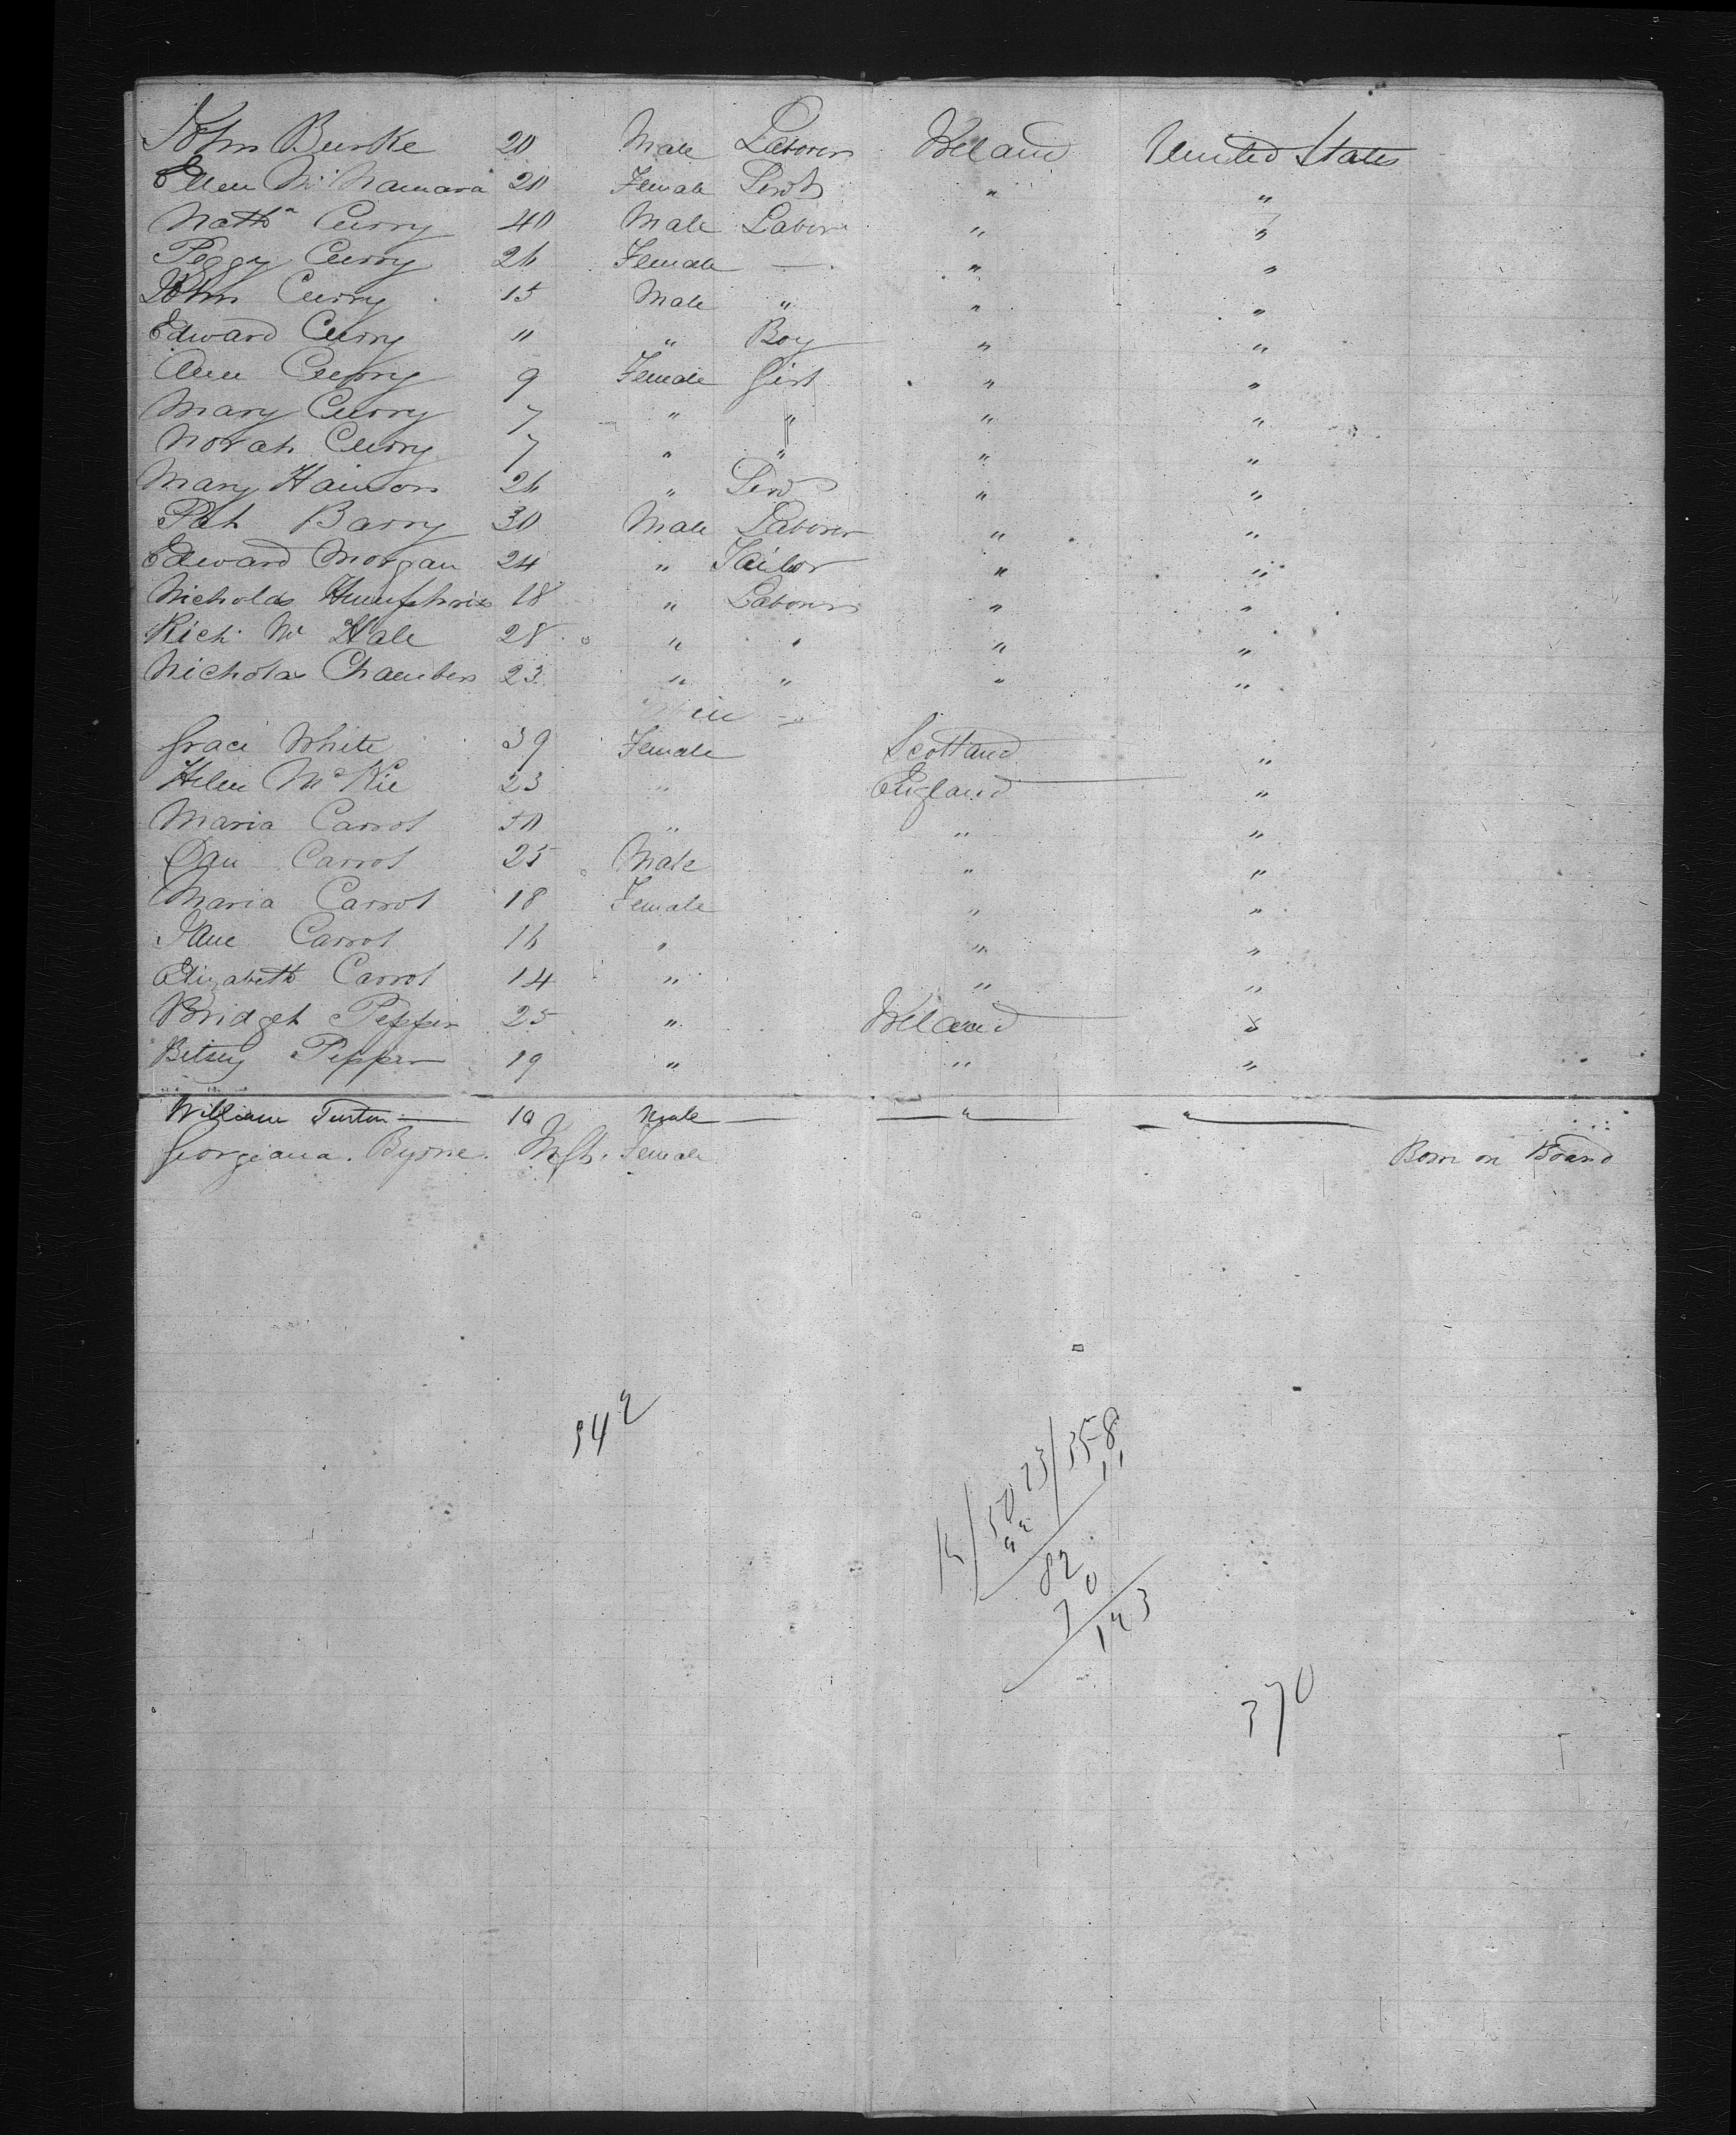 John Burke 20 Male Laborer Ireland United States
Ellen McNamara 20 Female Servt " "
Matth Curry 40 Male Labor " "
Peggy Curry 26 Female — " "
John Curry 15 Male " " "
Edward Curry 11 " Boy " "
Ann Curry 9 Female Girl " "
Mary Curry 7 " " " "
Norah Curry 7 " " " "
Mary 26 " Serv " "
Pat Barry 30 Male Laborer " "
Edward Morgan 24 " Tailor " "
Nicholas Humphries 18 " Laborer " "
Rich. Mc Hale 28 " " " "
Nicholas Chambers 23 " " " "
Grace White 39 Female Scotland "
Helen McKie 23 " England "
Maria Carrol 50 " " "
Dan Carrol 25 Male " "
Maria Carrol 18 Female " "
Jane Carrol 16 " " "
Elizabeth Carrol 14 " " "
Bridget Pepper 25 " Ireland "
Betsey Pepper 19 " " "
William Turton — 10 Male — " — " —
Georgeana. Byrne. Inft. Female Born on Board
342
23/358
11
82
70
123
370